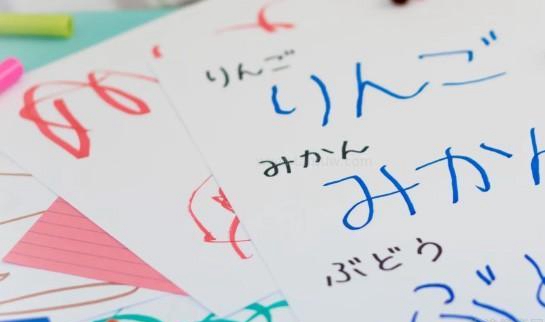 りんご りんご
みかん みかん
ぶどう ぶど